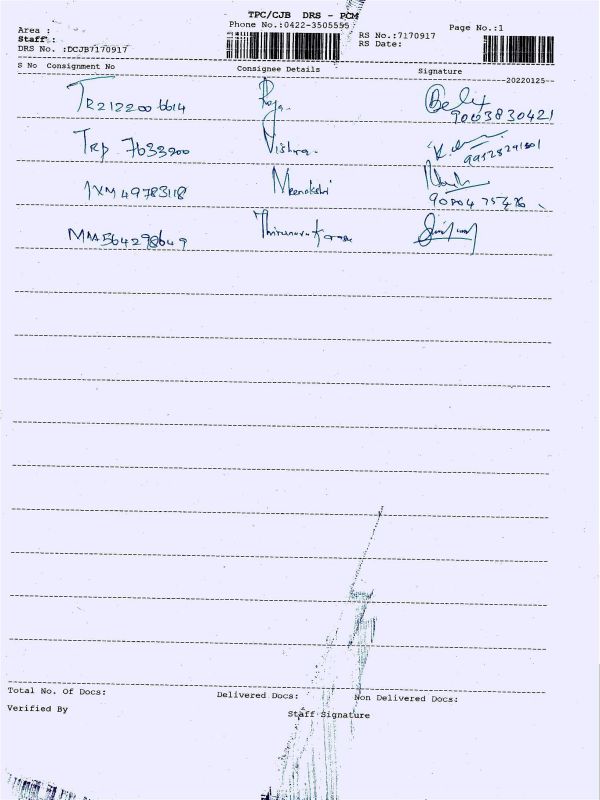 TPC/CJB DRS - PCM
Phone No.:0422-3505555
Page No.:1
Area :
Staff :
DRS No. :DCJB7170917
RS No.:7170917
RS Date:
S No Consignment No Consignee Details Signature
20220125
TR212200 6614 Raja.
9003830421
TRP 7633900 Vishva.
1XM49783118 Meenakshi
MAA564298649
Total No. Of Docs: Delivered Docs: Non Delivered Docs:
Verified By Staff Signature